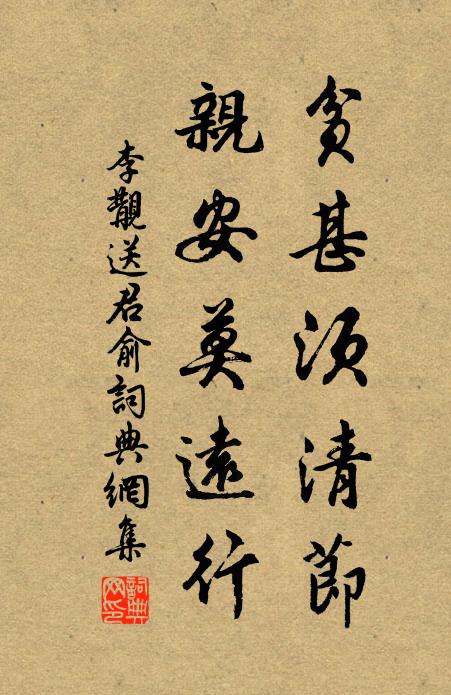 貧甚須清節
親安莫遠行
李覯送君俞詞典網集
詞典網印